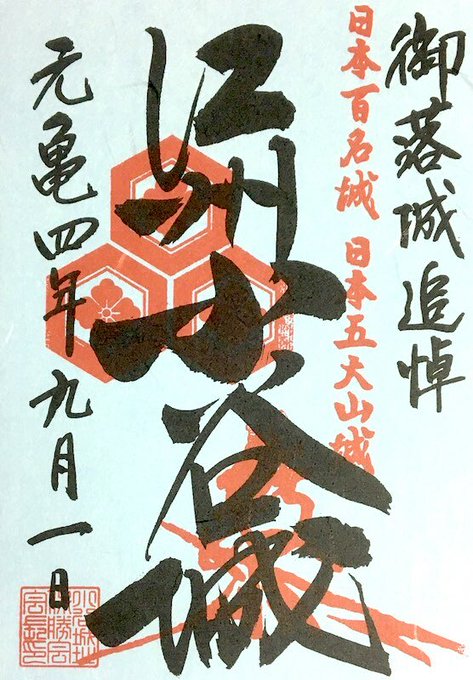 御落城追悼
日本百名城 日本五大山城
江州小谷城
元亀四年九月一日